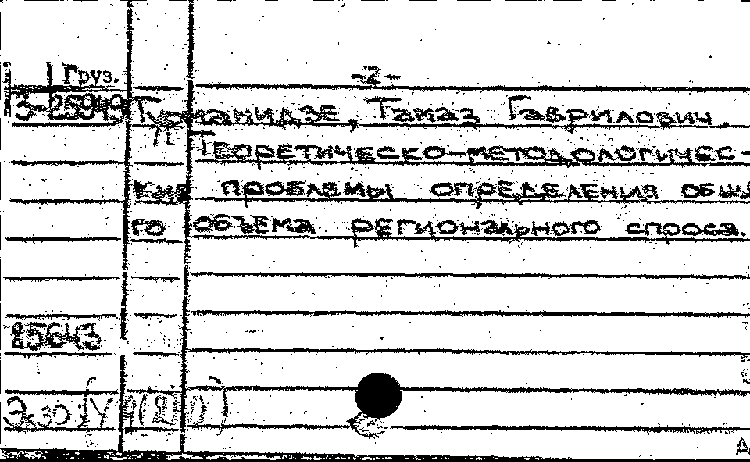 Груз.
-2-
З-25949 Турманидзе, Тамаз Гаврилович.
Теоретическо-методологичес-
кие проблемы определения обще
го объема регионального спроса.
25643